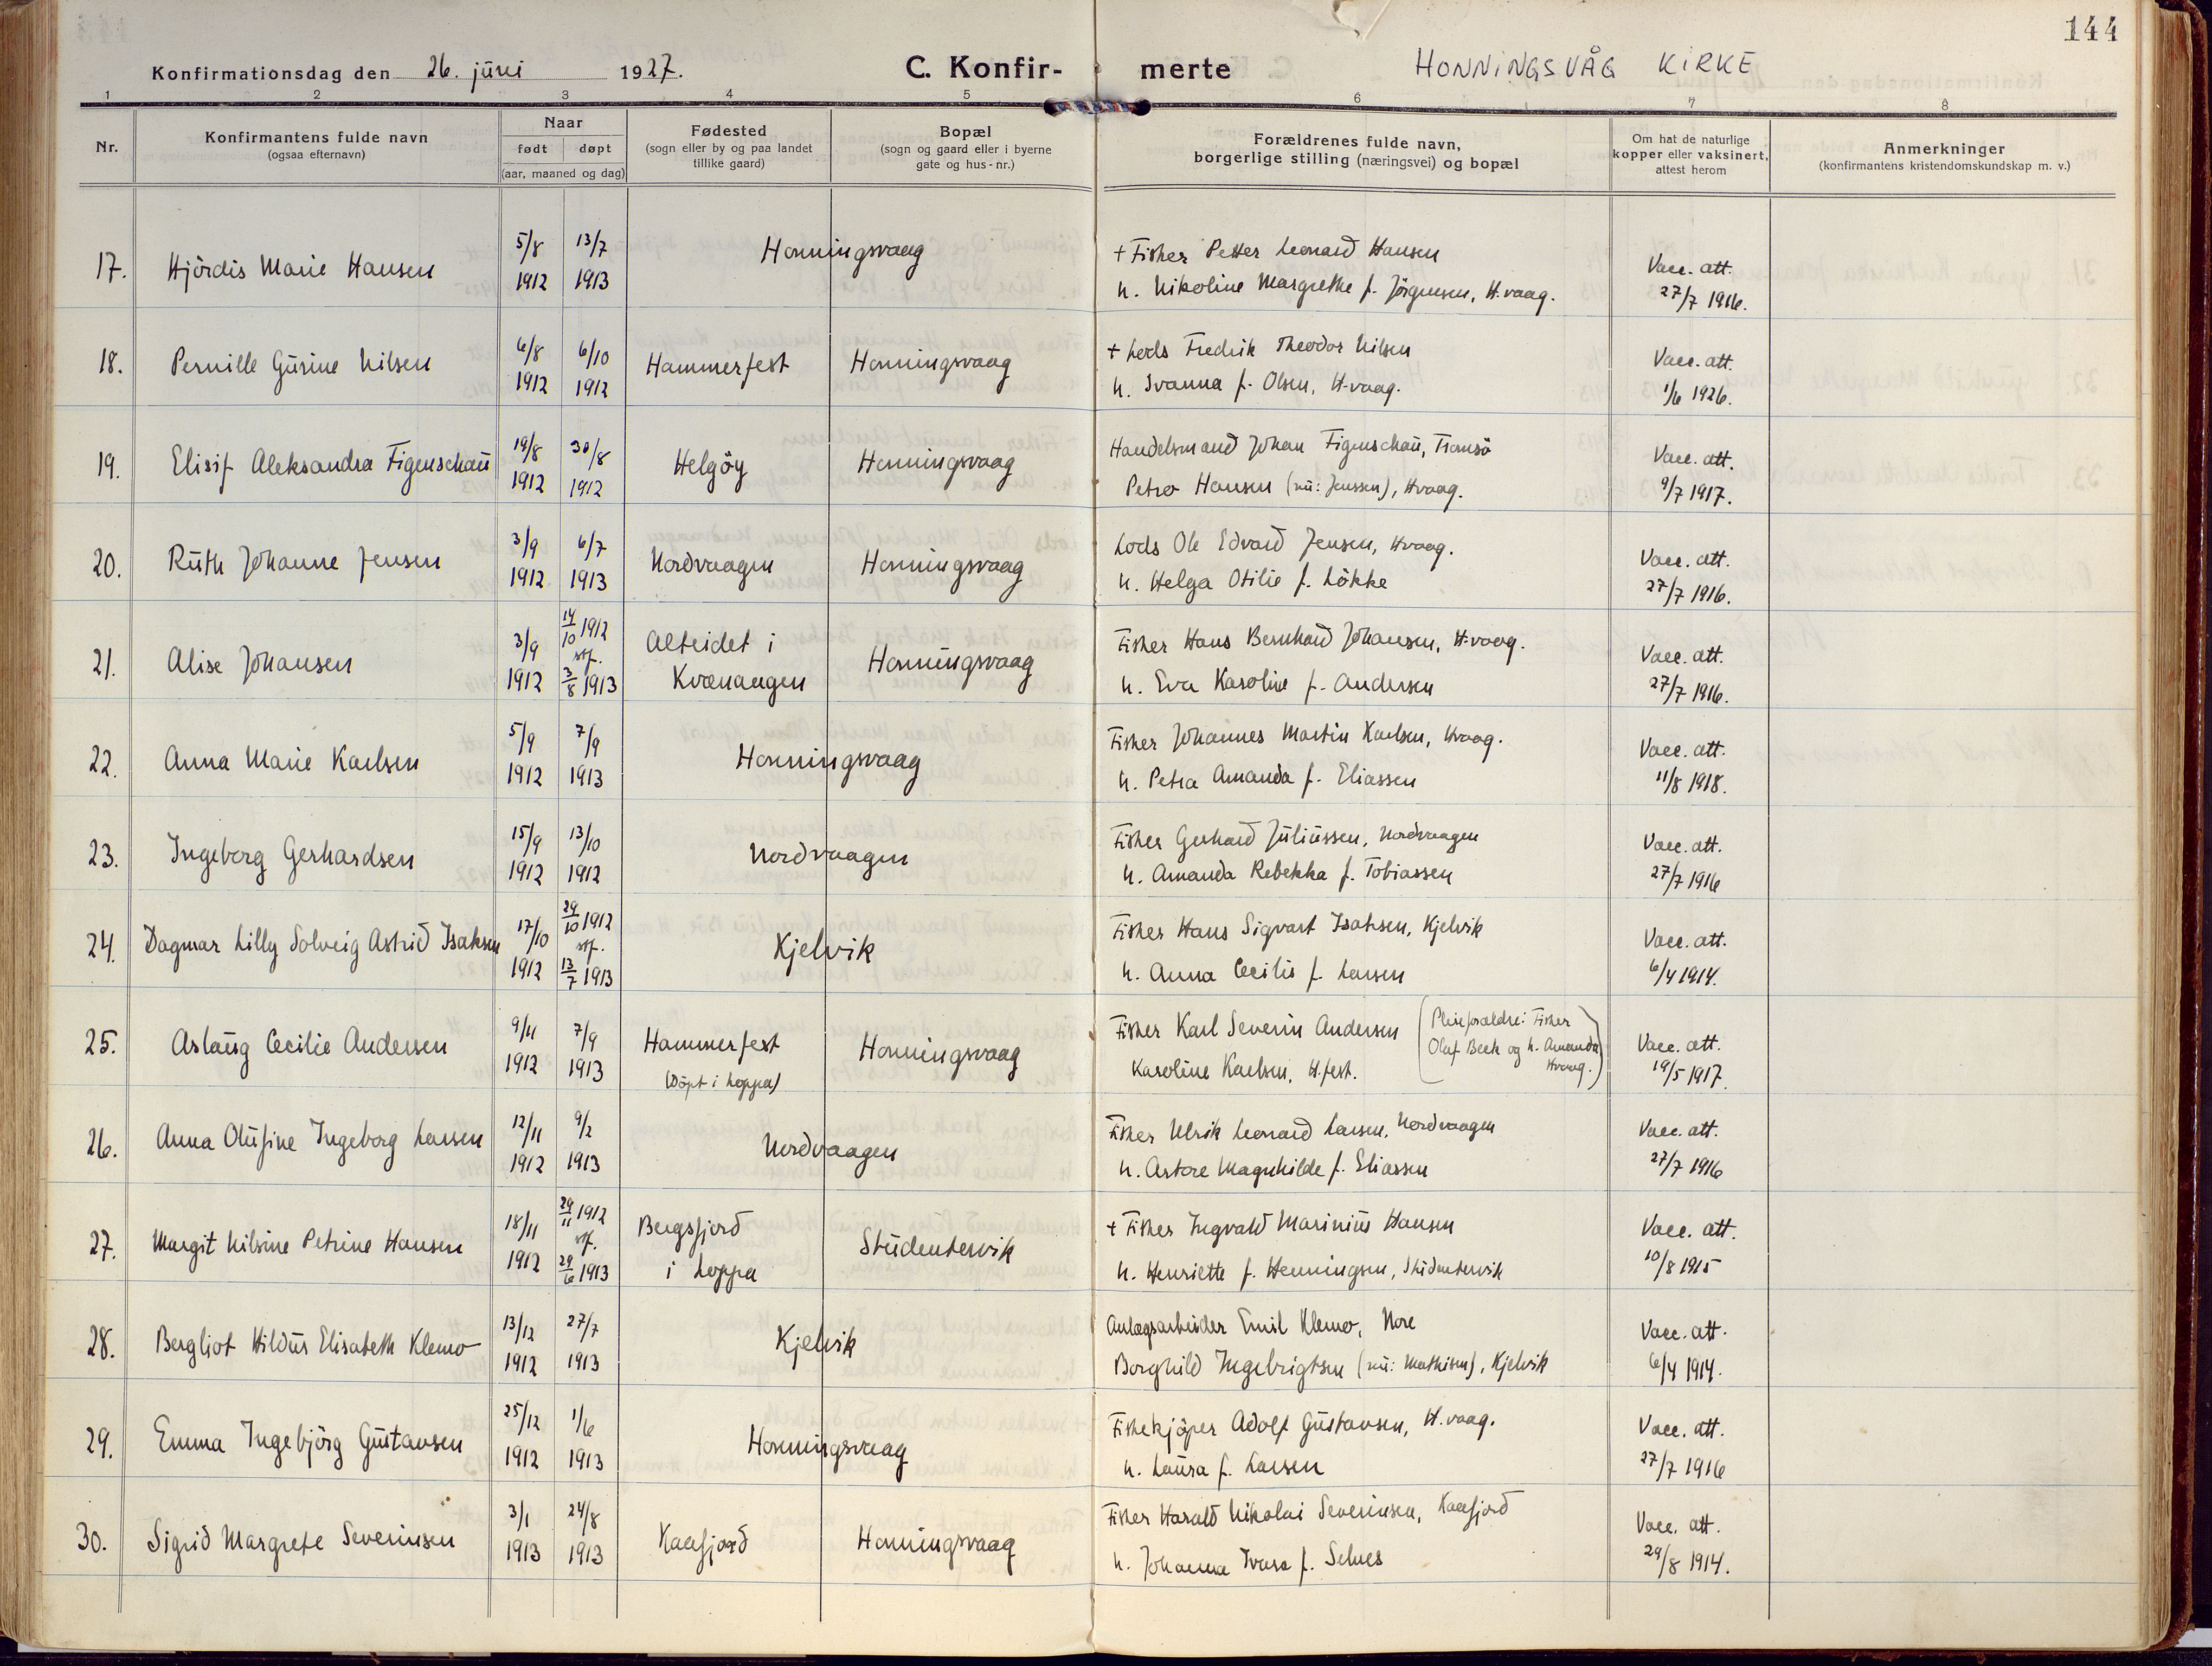 144
Konfirmationsdag den 26. juni 1927.
C. Konfir- merte
HONNINGSVÅG KIRKE
1 2 3 4 5 6 7 8
Nr.
Konfirmantens fulde navn
(ogsaa efternavn)
Naar
født døpt
(aar, maaned og dag)
Fødested
(sogn eller by og paa landet
tillike gaard)
Bopæl
(sogn og gaard eller i byerne
gate og hus-nr.)
Forældrenes fulde navn,
borgerlige stilling (næringsvei) og bopæl
Om hat de naturlige
kopper eller vaksinert,
attest herom
Anmerkninger
(konfirmantens kristendomskundskap m. v.)
17. Hjördis Marie Hansen 5/8 1912 13/7 1913 Honningsvaag
+ Fisker Petter Leonard Hansen
h. Nikoline Margrethe f. Jörgensen, H.vaag.
Vacc. att.
27/7 1916.
18. Pernille Gurine Nilsen 6/8 1912 6/10 1912 Hammerfest Honningsvaag
+ Lods Fredrik Theodor Nilsen
h. Ivanna f. Olsen, H.vaag.
Vacc. att.
1/6 1926.
19. Elisif Aleksandra Figenschau 19/8 1912 30/8 1912 Helgöy Honningsvaag
Handelsmand Johan Figenschau, Tromsö
Petra Hansen (nu: Jenssen), Hvaag.
Vacc. att.
9/7 1917.
20. Ruth Johanne Jensen 3/9 1912 6/7 1913 Nordvaagen Honningsvaag
Lods Ole Edvard Jensen, Hvaag.
h. Helga Otilie f. Lökke
Vacc. att.
27/7 1916.
21. Alise Johansen 3/9 1912 14/10 1912 stf. 3/8 1913 Alteidet i Kvænangen Honningsvaag
Fisker Hans Bernhard Johansen, H.vaag.
h. Eva Karoline f. Andersen
Vacc. att.
27/7 1916.
22. Anna Marie Karlsen 5/9 1912 7/9 1913 Honningsvaag
Fisker Johannes Martin Karlsen, Hvaag.
h. Petra Amanda f. Eliassen
Vacc. att.
11/8 1918.
23. Ingeborg Gerhardsen 15/9 1912 13/10 1912 Nordvaagen
Fisker Gerhard Juliussen, Nordvaagen
h. Amanda Rebekka f. Tobiassen
Vacc. att.
27/7 1916
24. Dagmar Lilly Solveig Astrid Isaksen 17/10 1912 29/10 1912 stf. 13/7 1913 Kjelvik
Fisker Hans Sigvart Isaksen, Kjelvik
h. Anna Cecilie f. Larsen
Vacc. att.
6/4 1914.
25. Aslaug Cecilie Andersen 9/11 1912 7/9 1913 Hammerfest (Döpt i Loppa) Honningsvaag
Fisker Karl Severin Andersen
Karoline Karlsen, H.fest.
(Pleieforældre: Fisker
Olaf Beck og h. Amanda
Hvaag.)
Vacc. att.
19/5 1917.
26. Anna Olufine Ingeborg Larsen 12/11 1912 9/2 1913 Nordvaagen
Fisker Ulrik Leonard Larsen, Nordvaagen
h. Astore Magnhilde f. Eliassen
Vacc. att.
27/7 1916
27. Margit Nilsine Petrine Hansen 18/11 1912 29/11 1912 stf. 29/6 1913 Bergsfjord i Loppa Studentervik
+ Fisker Ingvald Marinius Hansen
h. Henriette f. Henningsen, Studentervik
Vacc. att.
10/8 1915
28. Bergliot Hildus Elisabeth Klemo 13/12 1912 27/7 1913 Kjelvik
Anlægsarbeider Emil Klemo, Nore
Borghild Ingebrigtsen (nu: Mathisen), Kjelvik
Vacc. att.
6/4 1914.
29. Emma Ingebjörg Gustavsen 25/12 1912 1/6 1913 Honningsvaag
Fiskekjöper Adolf Gustavsen, H.vaag.
h. Laura f. Larsen
Vacc. att.
27/7 1916
30. Sigrid Margrete Severinsen 3/1 1913 24/8 1913 Kaafjord Honningsvaag
Fisker Harald Nikolai Severinsen, Kaafjord
h. Johanna f. Selnes
Vacc. att.
29/8 1914.